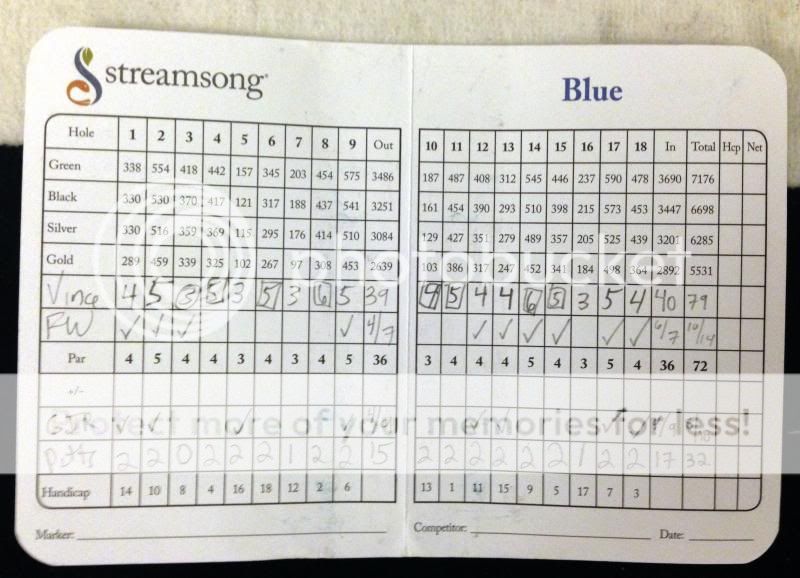 streamsong® Blue
Hole 1 2 3 4 5 6 7 8 9 Out 10 11 12 13 14 15 16 17 18 In Total Hcp Net
Green 338 554 418 442 157 345 203 454 575 3486 187 487 408 312 545 446 237 590 478 3690 7176
Black 330 530 370 417 121 317 188 437 541 3251 161 454 390 293 510 398 215 573 453 3447 6698
Silver 330 516 359 369 115 295 176 414 510 3084 129 427 351 279 489 357 205 525 439 3201 6285
photobucket
Gold 289 459 339 325 102 267 97 308 453 2639 103 386 317 247 452 341 184 498 364 2892 5531
Vince 4 5 3 5 3 5 3 6 5 39 4 5 4 4 6 5 3 5 4 40 79
FW ✓ ✓ ✓ ✓ 4/7 ✓ ✓ ✓ ✓ ✓ ✓ 6/7 10/14
Par 4 5 4 4 3 4 3 4 5 36 3 4 4 4 5 4 3 5 4 36 72
+/-
Protect more of your memories for less!
GIR ✓ ✓ ✓ ✓ ✓ ✓ ✓ ✓
Putts 2 2 0 2 2 2 1 2 2 15 2 2 2 2 2 2 1 2 2 17 32
Handicap 14 10 8 4 16 18 12 2 6 13 1 11 15 9 5 17 7 3
Marker: Competitor: Date: